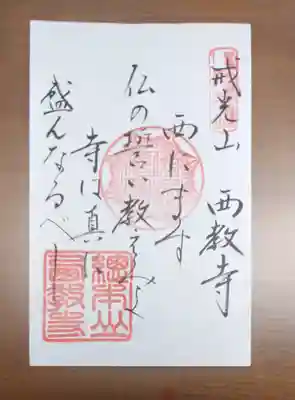 戒光山 西教寺
西にます
仏の誓い教え
寺は真に
盛んなるべし
總本山
西教寺